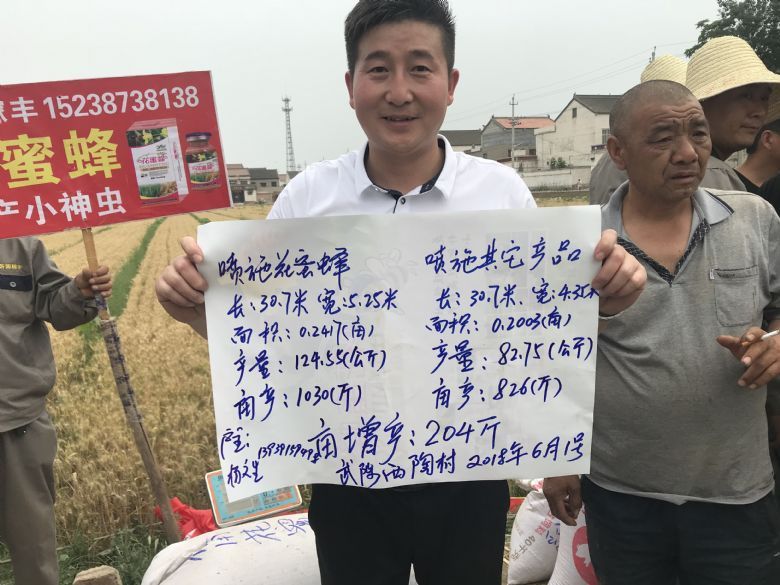 丰 15238738138
蜜蜂
花蜜蜂
小神虫
喷施花蜜蜂
长:30.7米 宽:5.25米
面积:0.2417(亩)
产量:124.55(公斤)
亩产:1030(斤)
喷施其它产品
长:30.7米、宽:4.35米
面积:0.2003(亩)
产量:82.75(公斤)
亩产:826(斤)
亩增产:204斤
户主:
杨文生
武陟西陶村 2018年6月1号